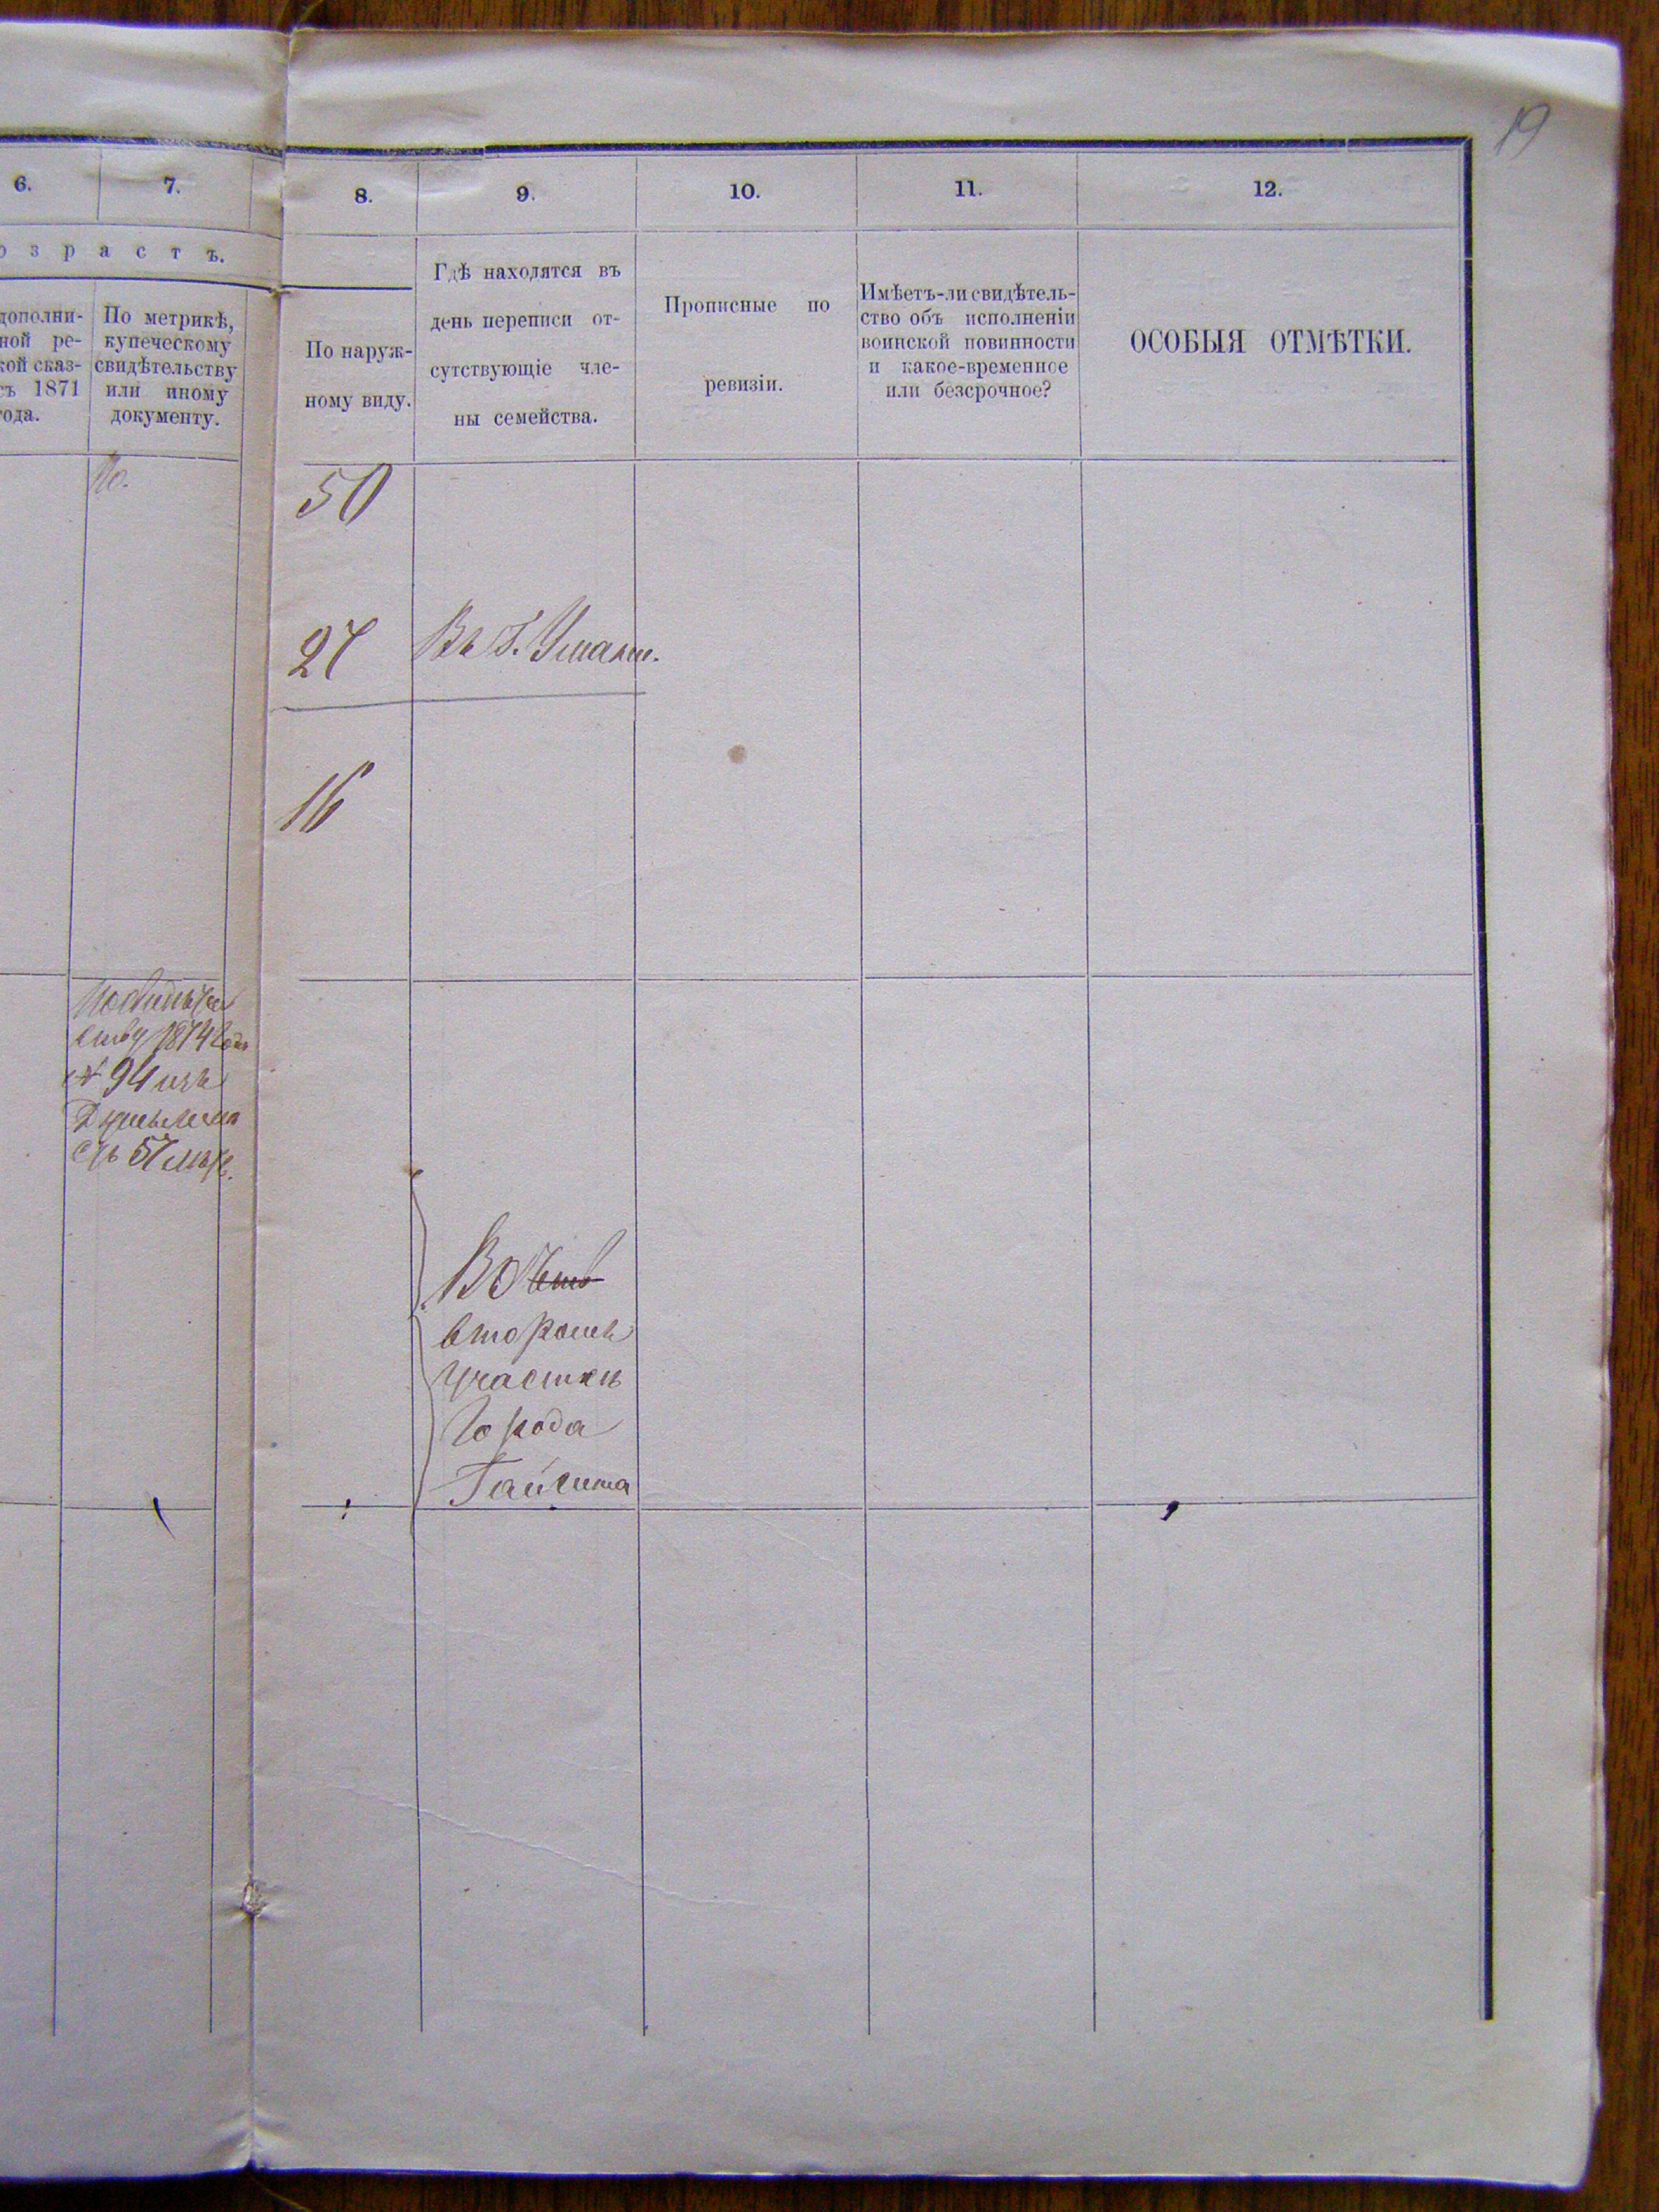 19
6.
7.
8.
9.
10.
11.
12.
о з р а с т ъ.
дополни-
ной ре-
кой сказ-
съ 1871
года.
По метрикѣ,
купеческому
свидѣтельству
или иному
документу.
По наруж-
ному виду.
Гдѣ находятся въ
день переписи от-
сутствующіе чле-
ны семейства.
Прописные по
ревизіи.
Имѣетъ-ли свидѣтель-
ство объ исполненіи
воинской повинности
и какое-временное
или безсрочное?
ОСОБЫЯ ОТМѢТКИ.
50
27
Въ г. Умани.
16
ству 1874 года
№ 94 изъ
57 лѣтъ.
Во
второмъ
участкѣ
города
Гайсина